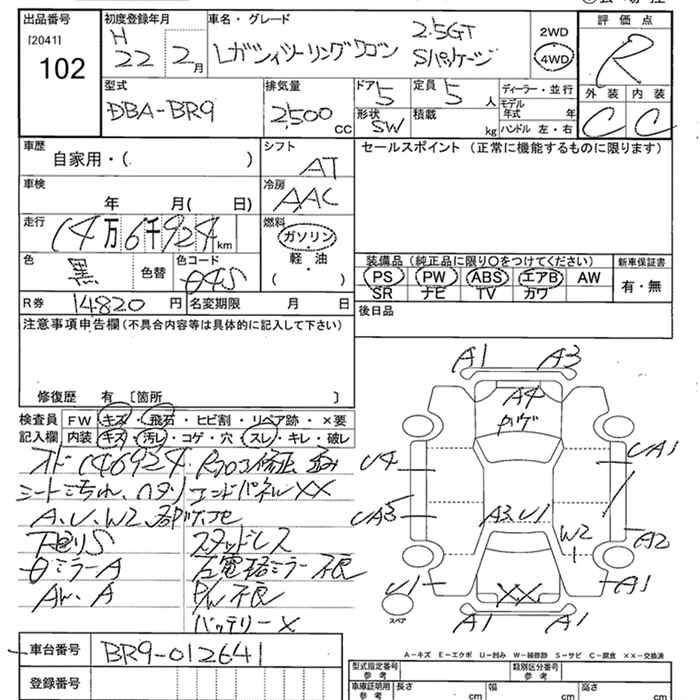 出品番号
[2041]
102
初度登録年月
H
22 2月
車名・グレード
レガシィツーリングワゴン 2.5GT
Sパッケージ
2WD
4WD
評価点
R
外装 内装
C C
型式
DBA-BR9
排気量
2,500 cc
ドア 5
形状 SW
定員 5 人
積載 kg
ディーラー・並行
モデル年式 年
ハンドル 左・右
車歴
自家用・( )
シフト
AT
セールスポイント (正常に機能するものに限ります)
車検
年 月( 日)
冷房
AAC
走行
14万6千924km
燃料
ガソリン
軽・油
( ・ )
色
黒 色替
色コード
04S
装備品 (純正品に限り○をつけてください)
PS PW ABS エアB AW
SR ナビ TV カワ
新車保証書
有・無
R券 14820円
名変期限 月 日
後日品
注意事項申告欄 (不具合内容等は具体的に記入して下さい)
修復歴 有 [箇所 ]
検査員記入欄
FW キズ・飛石・ヒビ割・リペア跡・×要
内装 キズ・汚レ・コゲ・穴・スレ・キレ・破レ
オド146924
シートよごれ、ヘタリ エンドパネルXX
A、U、W2、
スタッドレス
ミラーA
AW、A PW不良
バッテリーX
A1 A3
A4
U4 UA1
UA3 A3 U1
W2 A2
U1 XX A1
スペア
A1 A1
A-キズ E-エクボ U-凹み W-補修跡 S-サビ C-腐食 XX-交換済
車台番号
BR9-012641
登録番号
型式指定番号 参考
類別区分番号 参考
車庫証明用 参考
長さ cm
幅 cm
高さ cm